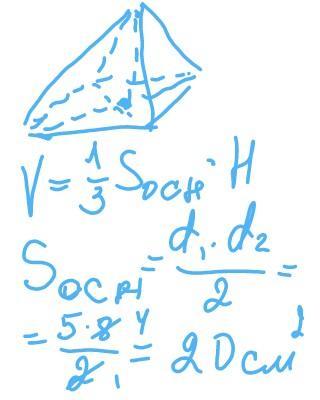 V = 1/3 Sосн · H
Sосн = d₁ · d₂ / 2 =
= 5 · 8 4 / 2 1 = 20 см²